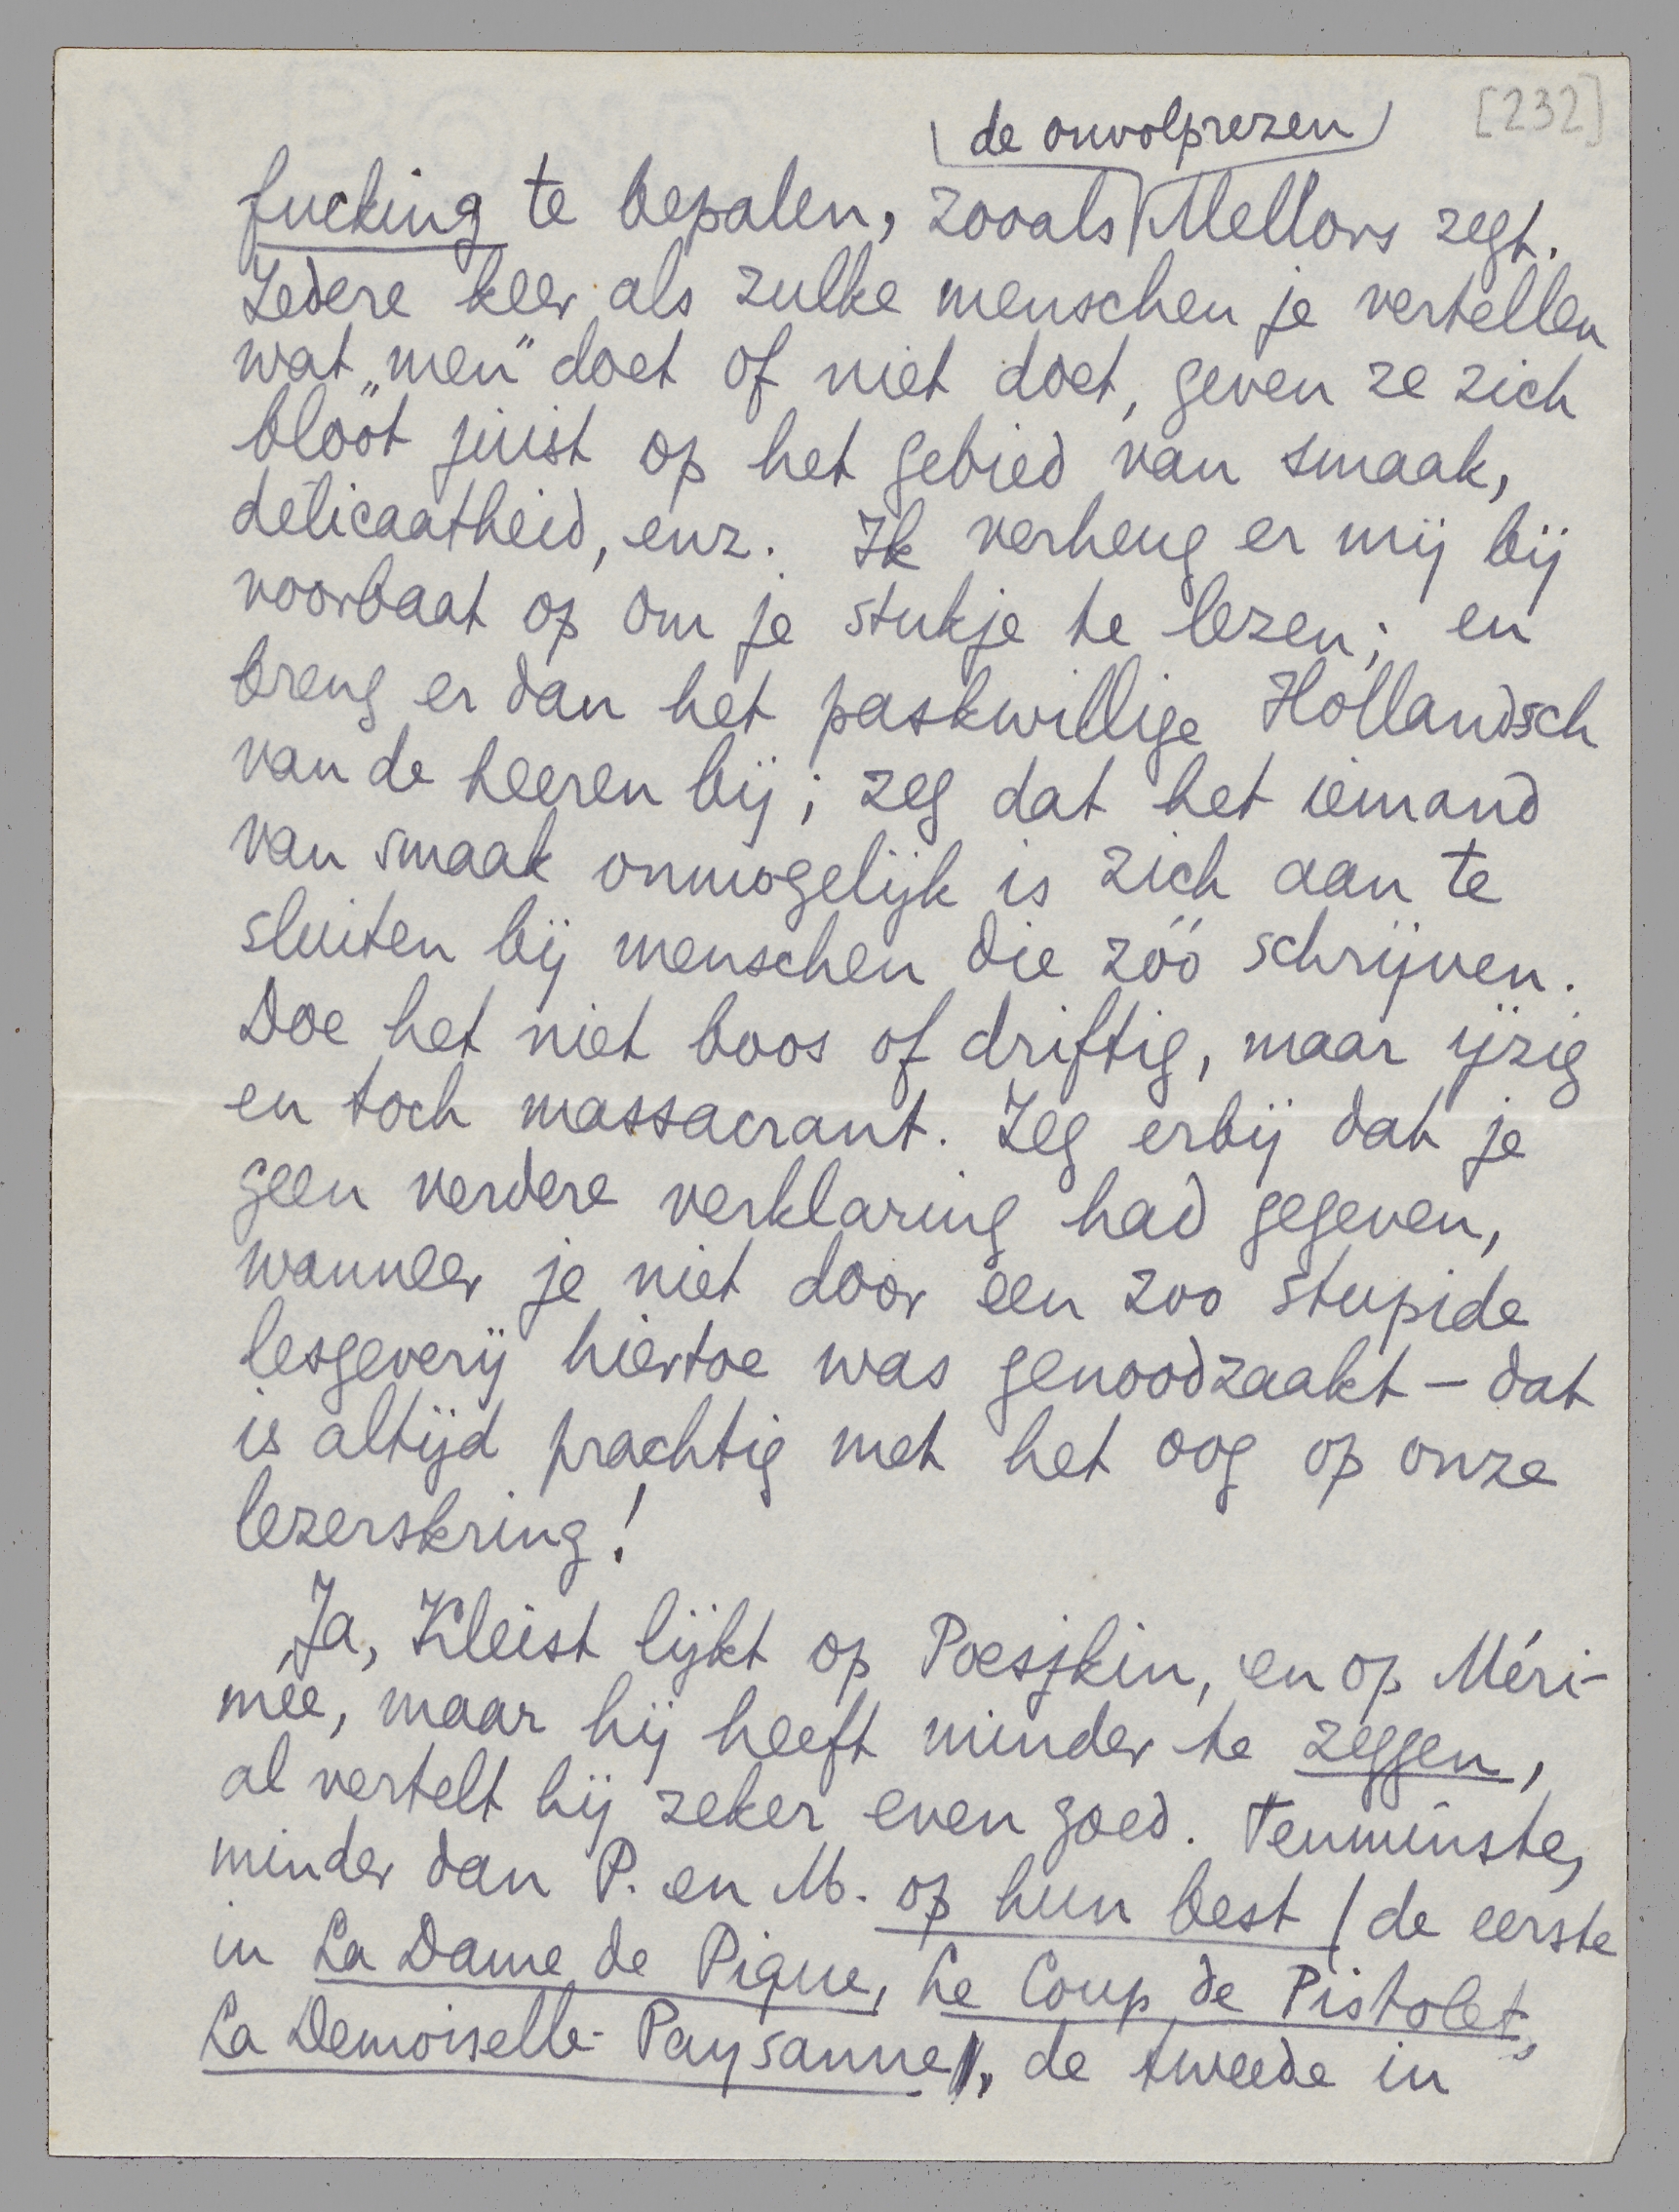 [232]
de onvolprezen
fucking te bepalen, zooals Mellors zegt.
Iedere keer als zulke menschen je vertellen
wat „men" doet of niet doet, geven ze zich
bloot juist op het gebied van smaak,
délicaatheid, enz. Ik verheug er mij bij
voorbaat op om je stukje te lezen; en
breng er dan het paskwillige Hollandsch
van de heeren bij; zeg dat het iemand
van smaak onmogelijk is zich aan te
sluiten bij menschen die zóó schrijven.
Doe het niet boos of driftig, maar ijzig
en toch massacrant. Zeg erbij dat je
geen verdere verklaring had gegeven,
wanneer je niet door een zoo stupide
lesgeverij hiertoe was genoodzaakt – dat
is altijd prachtig met het oog op onze
lezerskring!
Ja, Kleist lijkt op Poesjkin, en op Méri-
mée, maar hij heeft minder te zeggen,
al vertelt hij zeker even goed. Tenminste,
minder dan P. en M. op hun best (de eerste
in La Dame de Pique, Le Coup de Pistolet,
La Demoiselle-Paysanne, de tweede in